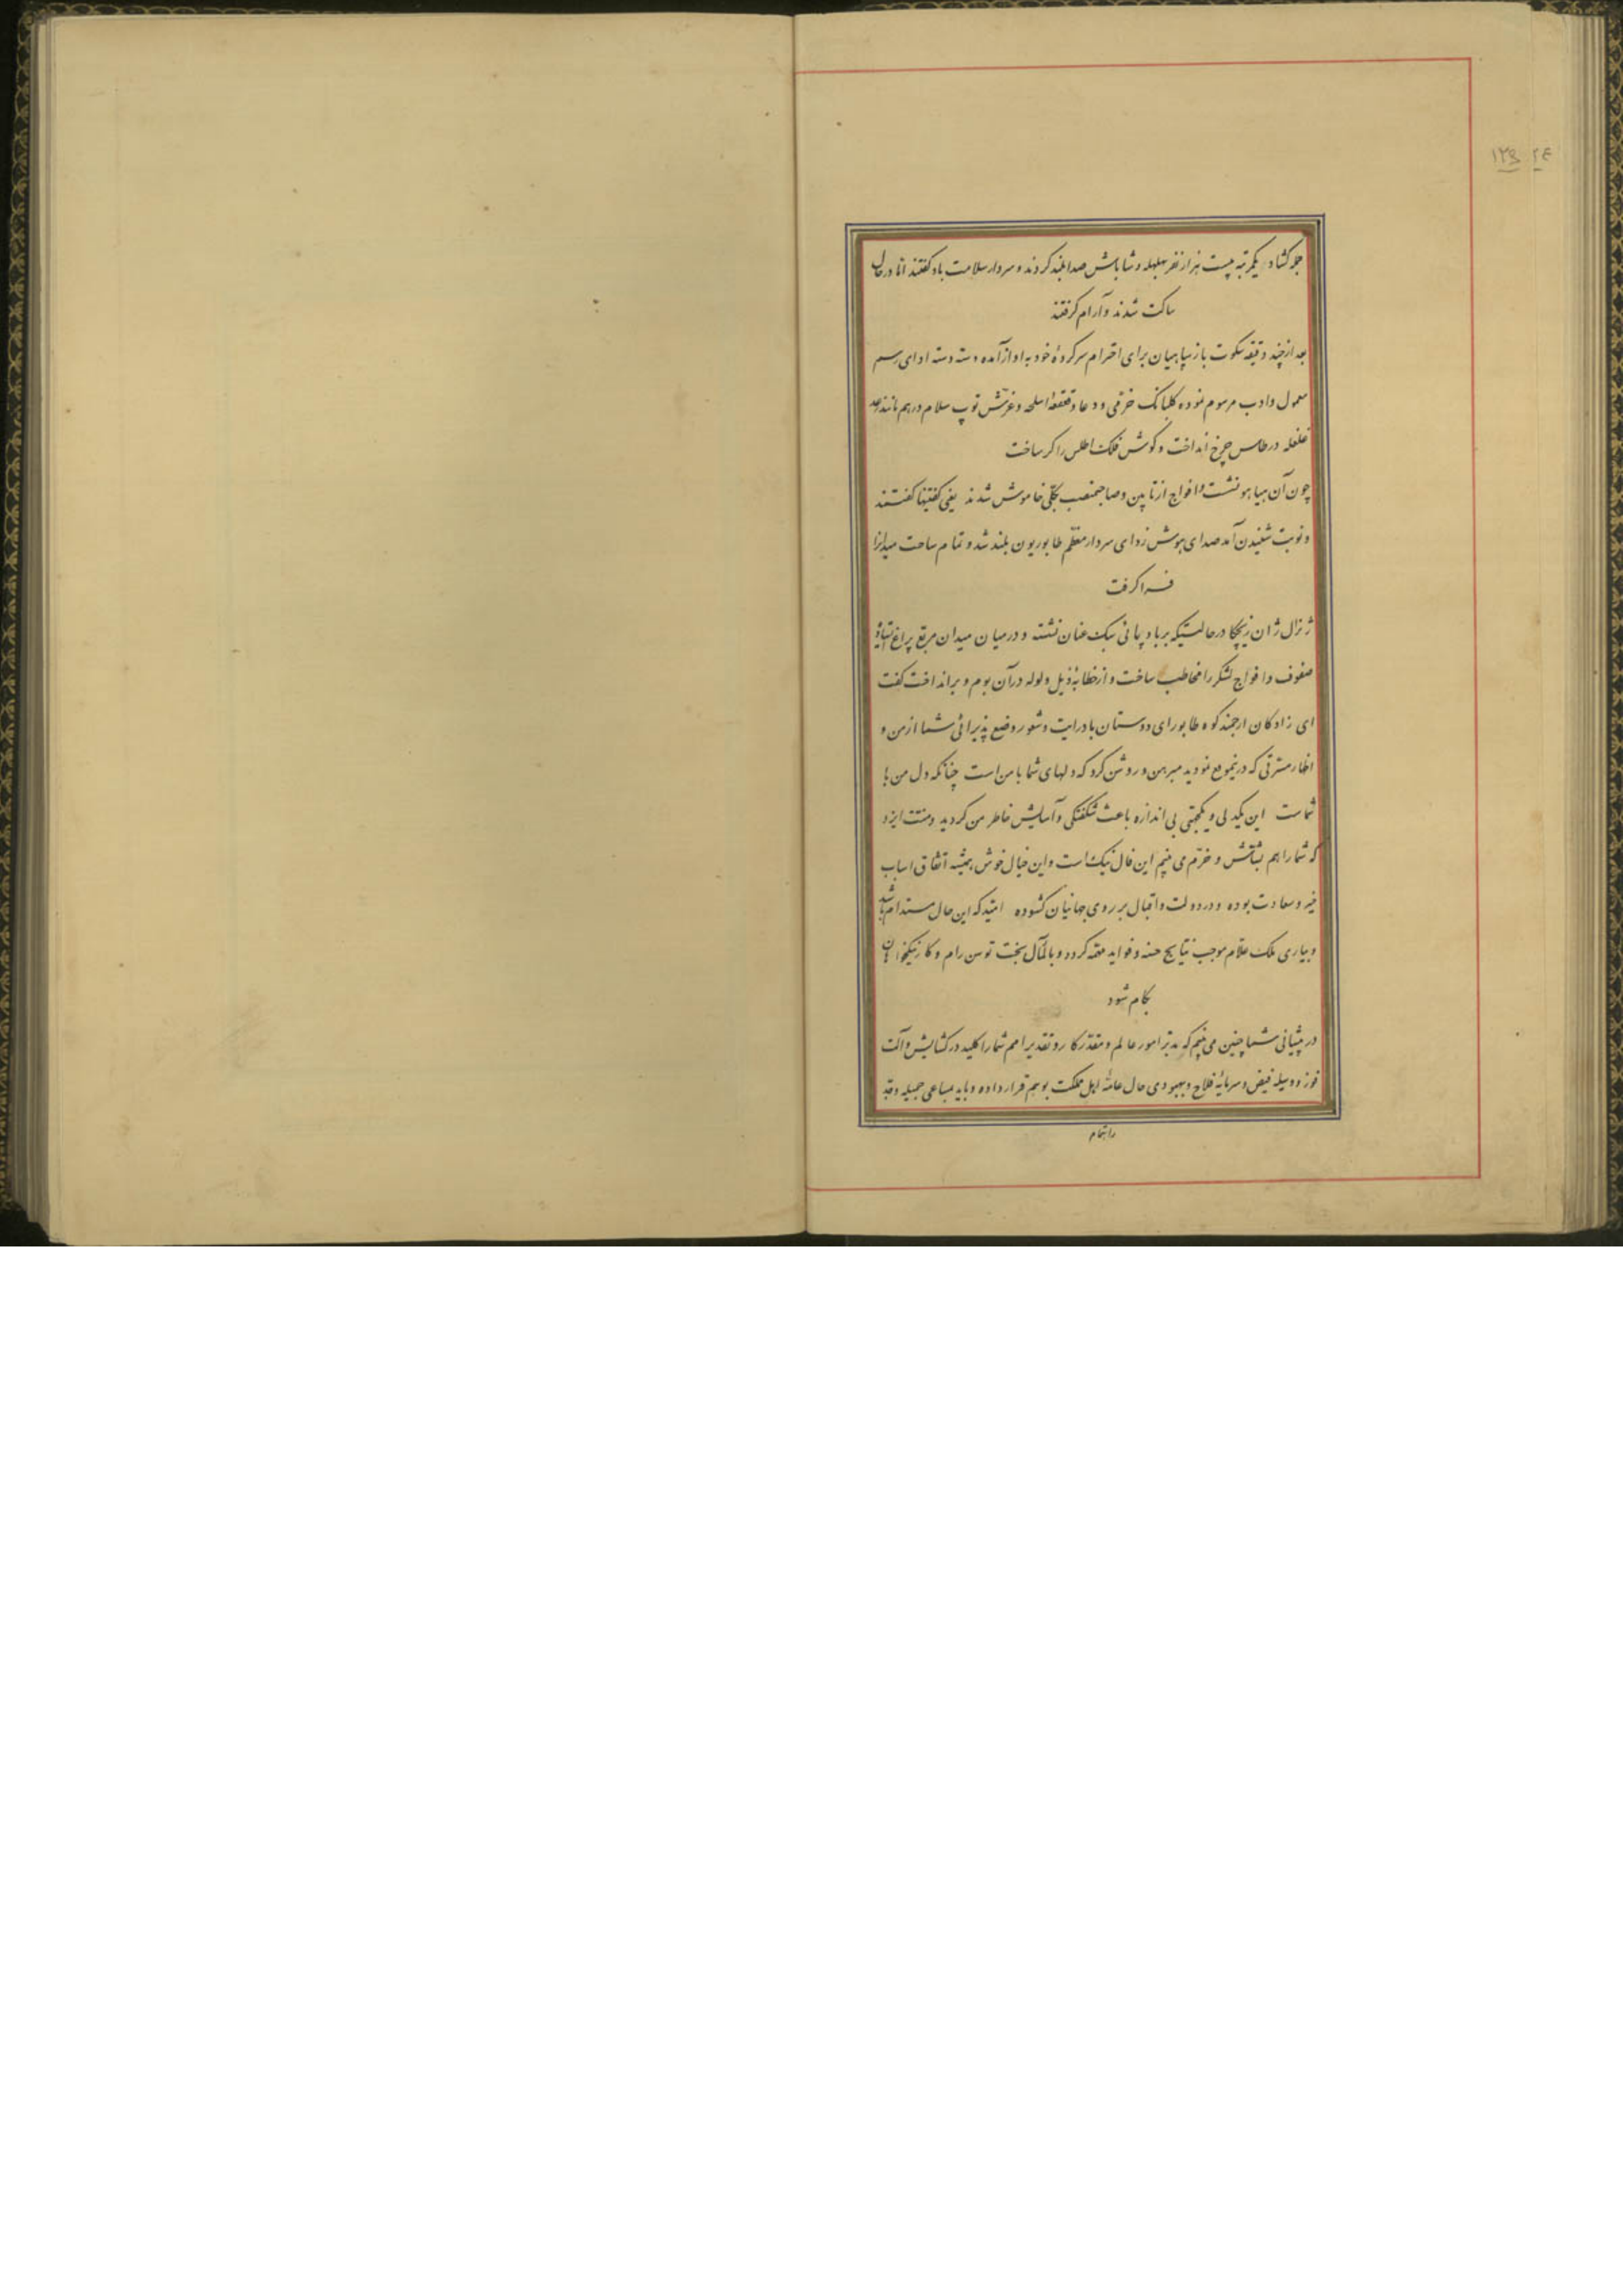 ۱۲۹ ۲۴
جو کشاد یکمرتبه بیست هزار نفر بهلهله و شاباش صدا بلند کردند و سردار سلامت باد گفتند اما در حال
ساکت شدند و آرام گرفتند
بعد از چند دقیقه سکوت باز سپاهیان برای احترام سرکردهٔ خود به اواز آمده دسته دسته ادای رسم
معمول و ادب مرسوم نموده گلبانک خرمی و دعا و قعقعهٔ اسلحه و غرش توپ سلام درهم مانند رعد
غلغله در طاس چرخ انداخت و گوش فلک اطلس را کر ساخت
چون آن هیاهو نشست و افواج از تابین و صاحبمنصب بکلی خاموش شدند یعنی گفتنیها گفتند
و نوبت شنیدن آمد صدای هوش زدای سردار معظم طابوریون بلند شد و تمام ساحت میدانرا
فرا گرفت
ژنرال ژان زیچکا در حالتیکه بر باد پائی سبک عنان نشسته و در میان میدان مربع پراغ
صفوف و افواج لشکر را مخاطب ساخت و از خطابهٔ ذیل ولوله در آن بوم و بر انداخت گفت
ای زادگان ارجمند کوه طابور ای دوستان با درایت و شعور وضع پذیرائی شما از من و
اظهار مسرتی که درینموقع نمودید مبرهن و روشن کرد که دلهای شما با من است چنانکه دل من با
شماست این یکدلی و یکجهتی بی اندازه باعث شکفتگی و آسایش خاطر من گردید و منت ایزد
که شما را هم بشاش و خرم می بینم این فال نیک است و این خیال خوش همیشه اتفاق اسباب
خیر و سعادت بوده و در دولت و اقبال بر روی جهانیان گشوده امید که این حال مستدام باشد
و بیاری ملک علام موجب نتایج حسنه و فواید مهمه گردد و بالمآل بخت توسن رام و کار نیکخواهان
بکام شود
در پیشانی شما چنین می بینم که مدبر امور عالم و مقدر کار و تقدیر امم شما را کلید در کشایش و آلت
فوز و وسیله فیض و سرمایهٔ فلاح و بهبودی حال عامهٔ اهل مملکت بوهم قرار داده و باید مساعی جمیله و جد